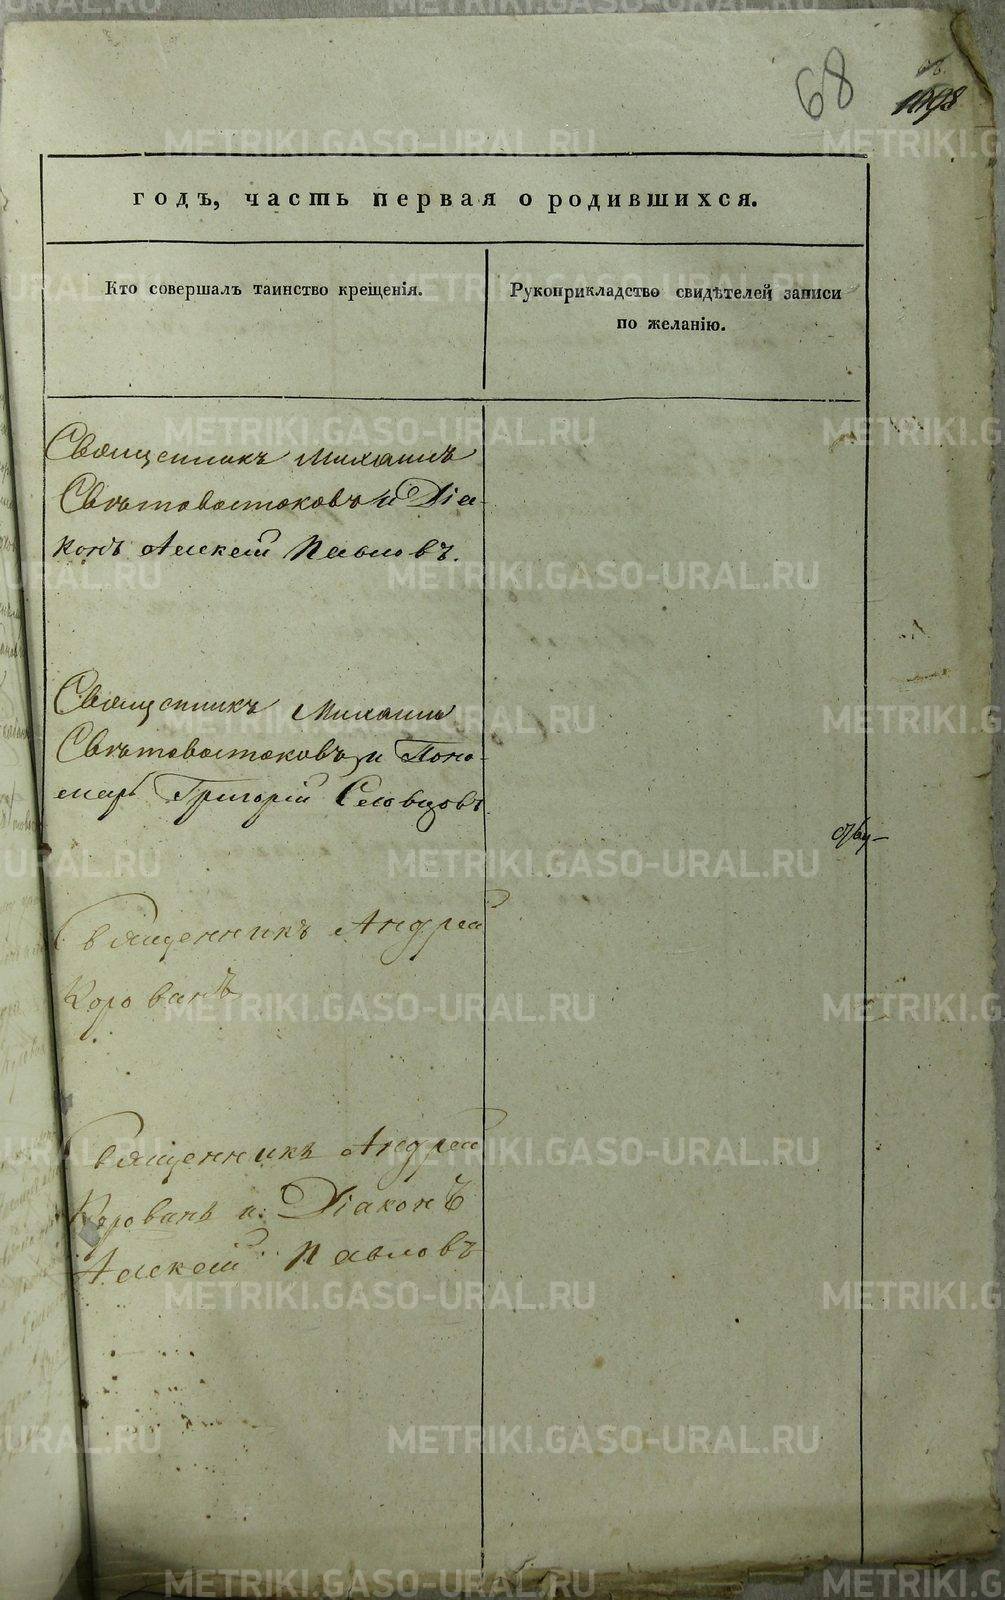 68
годъ, часть первая о родившихся.
Кто совершалъ таинство крещенія.
Рукоприкладство свидѣтелей записи
по желанію.
Священникъ Михаилъ
Свѣтовостоковъ и Діа-
конъ Алексій Павловъ.
Священникъ Михаилъ
Свѣтовостоковъ и Поно-
марь Григорій Словцовъ
Священникъ Андрей
Корованъ
Священникъ Андрей
Корованъ и Діаконъ
Алексій Павловъ
METRIKI.GASO-URAL.RU